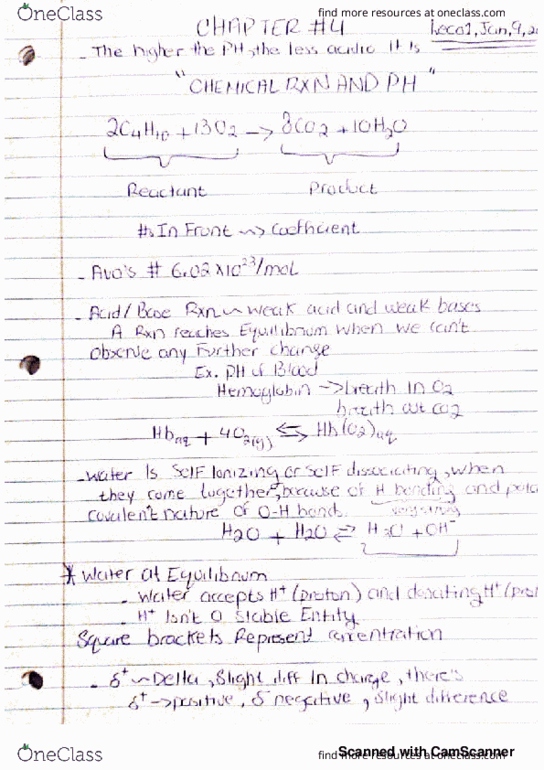 OneClass
find more resources at oneclass.com
CHAPTER #4
Leco1, Jan, 9, 2
- The higher the PH, the less acidic It Is
"CHEMICAL RXN AND PH"
2C4H10 + 13O2 -> 8CO2 + 10H2O
Reactant Product
#s In Front ~> Coefficient
- Avo's # 6.02 x10^23/mol
- Acid/Base Rxn ~ weak acid and weak bases
A Rxn reaches Equilibrium when we can't
observe any Further change
Ex. PH of Blood
Hemoglobin -> breath in O2
breath out CO2
Hb aq + 4O2(g) ⇆ Hb(O2) aq
- Water Is Self Ionizing or self dissociating, when
they come together, because of H bonding and pola
very strong
covalent nature of O-H bond.
H2O + H2O ⇌ H3O + OH-
* Water at Equilibrium
- Water accepts H+ (proton) and donating H+ (pro
- H+ Isn't a Stable Entity
Square brackets Represent concentration
- δ+ ~ Delta, slight diff in charge, there's
δ+ -> positive, δ- negative, slight difference
OneClass
find more resources at oneclass.com
Scanned with CamScanner